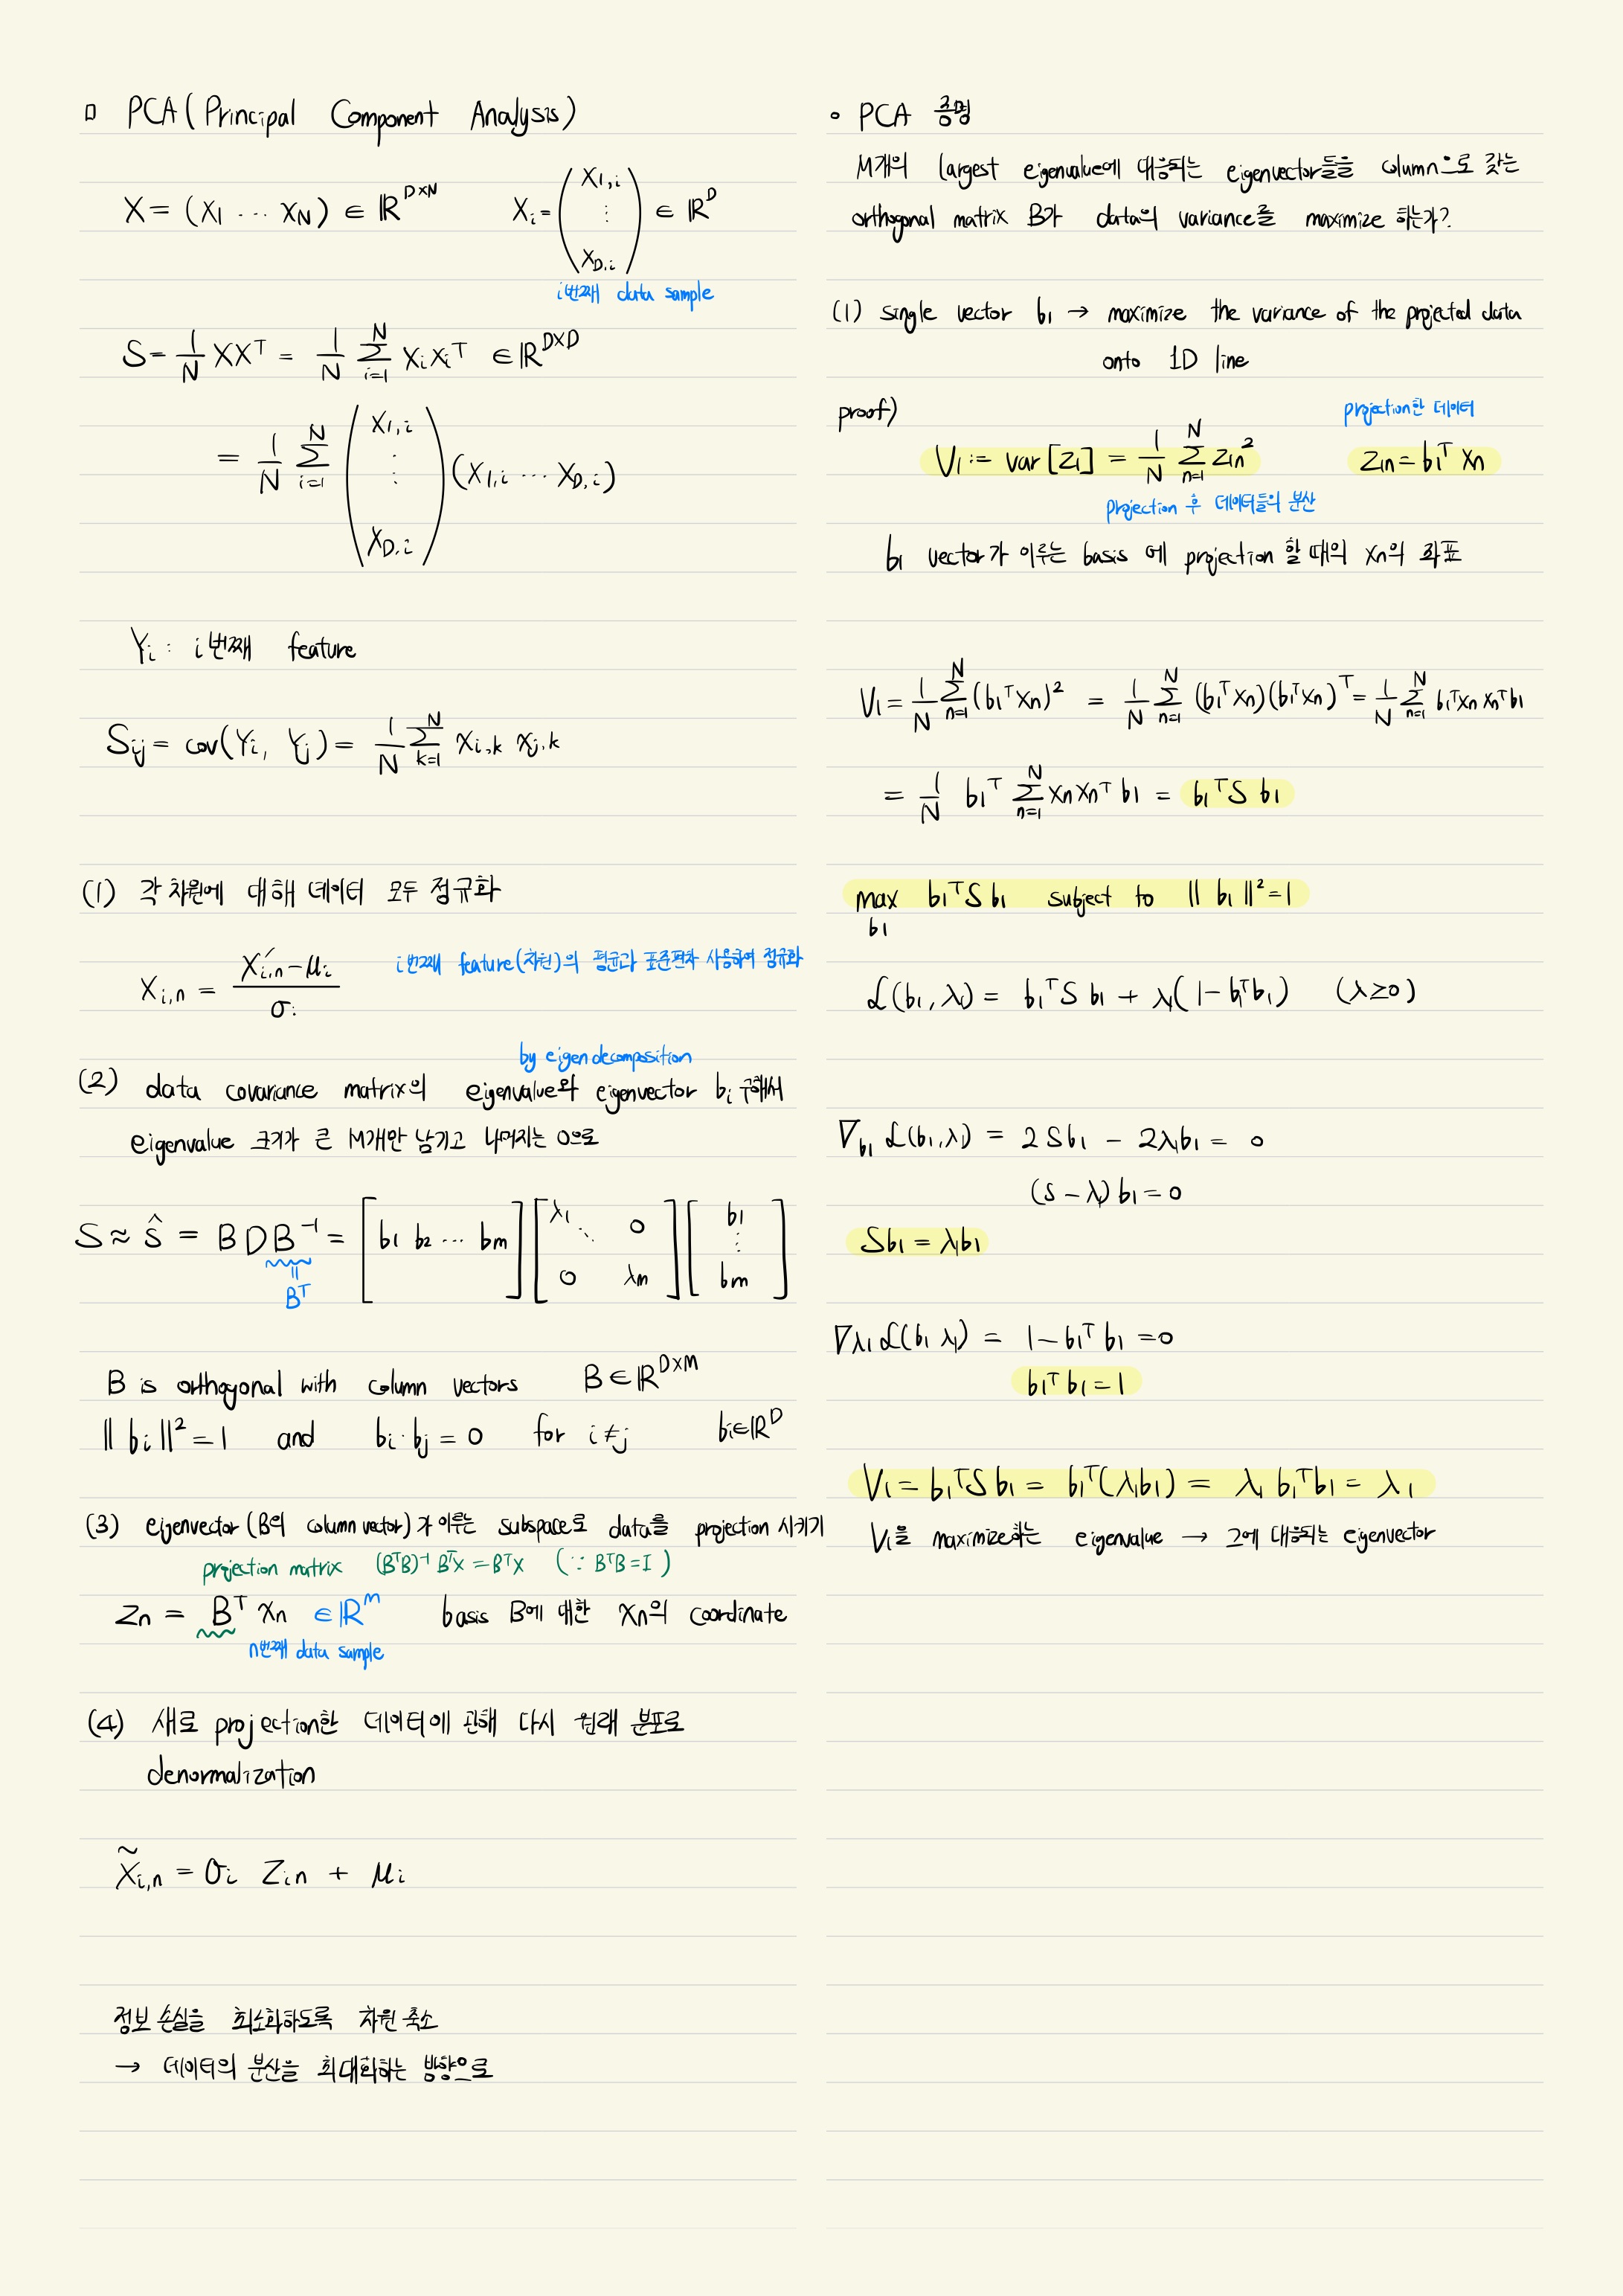 □ PCA (Principal Component Analysis)
X = (x₁ ⋯ x_N) ∈ ℝ^{D×N}   X_i = (x_{1,i} ⋮ x_{D,i}) ∈ ℝ^D
i번째 data sample
S = 1/N XXᵀ = 1/N Σ_{i=1}^{N} x_i x_iᵀ ∈ ℝ^{D×D}
= 1/N Σ_{i=1}^{N} (x_{1,i} ⋮ x_{D,i}) (x_{1,i} ⋯ x_{D,i})
Y_i : i번째 feature
S_{ij} = cov(Y_i, Y_j) = 1/N Σ_{k=1}^{N} x_{i,k} x_{j,k}
(1) 각 차원에 대해 데이터 모두 정규화
x_{i,n} = (x′_{i,n} − μ_i) / σ_i   i번째 feature(차원)의 평균과 표준편차 사용하여 정규화
by eigen decomposition
(2) data covariance matrix의 eigenvalue와 eigenvector b_i 구해서
eigenvalue 크기가 큰 M개만 남기고 나머지는 0으로
S ≈ Ŝ = B D B⁻¹ = [b₁ b₂ ⋯ b_m] [λ₁ ⋱ 0 0 λ_m] [b₁ ⋮ b_m]
=
Bᵀ
B is orthogonal with column vectors   B ∈ ℝ^{D×M}
‖b_i‖² = 1 and b_i · b_j = 0 for i ≠ j   b_i ∈ ℝ^D
(3) eigenvector (B의 column vector)가 이루는 subspace로 data를 projection 시키기
projection matrix (BᵀB)⁻¹ Bᵀx = Bᵀx (∵ BᵀB = I)
z_n = Bᵀ x_n ∈ ℝ^M   basis B에 대한 x_n의 coordinate
n번째 data sample
(4) 새로 projection한 데이터에 관해 다시 원래 분포로
denormalization
x̃_{i,n} = σ_i z_{in} + μ_i
정보 손실을 최소화하도록 차원 축소
→ 데이터의 분산을 최대화하는 방향으로
∘ PCA 증명
M개의 largest eigenvalue에 대응되는 eigenvector들을 column으로 갖는
orthogonal matrix B가 data의 variance를 maximize 하는가?
(1) single vector b₁ → maximize the variance of the projected data
onto 1D line
proof)
projection한 데이터
V₁ := var[z₁] = 1/N Σ_{n=1}^{N} z_{1n}²   z_{1n} = b₁ᵀ x_n
projection 후 데이터들의 분산
b₁ vector가 이루는 basis 에 projection 할 때의 x_n의 좌표
V₁ = 1/N Σ_{n=1}^{N} (b₁ᵀx_n)² = 1/N Σ_{n=1}^{N} (b₁ᵀx_n)(b₁ᵀx_n)ᵀ = 1/N Σ_{n=1}^{N} b₁ᵀx_n x_nᵀb₁
= 1/N b₁ᵀ Σ_{n=1}^{N} x_n x_nᵀ b₁ = b₁ᵀS b₁
max_{b₁} b₁ᵀS b₁ subject to ‖b₁‖² = 1
ℒ(b₁, λ₁) = b₁ᵀS b₁ + λ₁(1 − b₁ᵀb₁)   (λ ≥ 0)
∇_{b₁} ℒ(b₁, λ₁) = 2Sb₁ − 2λ₁b₁ = 0
(S − λ₁) b₁ = 0
Sb₁ = λ₁b₁
∇λ₁ ℒ(b₁ λ₁) = 1 − b₁ᵀ b₁ = 0
b₁ᵀ b₁ = 1
V₁ = b₁ᵀS b₁ = b₁ᵀ(λ₁b₁) = λ₁ b₁ᵀb₁ = λ₁
V₁을 maximize하는 eigenvalue → 그에 대응되는 eigenvector